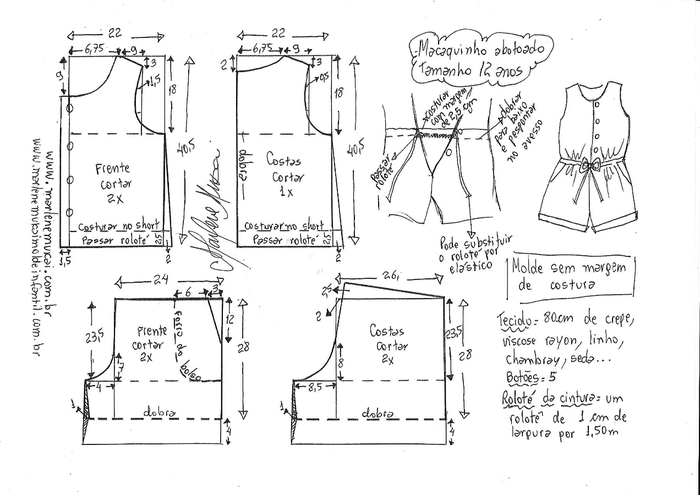 22
6,75
9
3
9
1,5
18
40,5
Frente
cortar
2x
costurar no short
Passar rolotê
2,5
1,5
2
22
6,75
9
2
3
0,5
18
40,5
dobra
Costas
cortar
1x
costurar no short
Passar rolotê
2,5
2
Marlene Mukai
www.marlenemukai.com.br
www.marlenemukaimoldeinfantil.com.br
Macaquinho abotoado
Tamanho 12 anos
costurar
com margem
de 2,5 cm
dobrar
para baixo
e pespontar
no avesso
Passar
rolotê
Pode substituir
o rolotê por
elástico
24
6
3
12
23,5
28
Frente
cortar
2x
Forro do
bolso
7
4
1
dobra
4
26,
2,5
2
23,5
28
Costas
cortar
2x
8
8,5
1
dobra
4
Molde sem margem
de costura
Tecido= 80cm de crepe,
viscose rayon, linho,
chambray, seda...
Botões= 5
Rolotê da cintura= um
rolotê de 1 cm de
largura por 1,50m